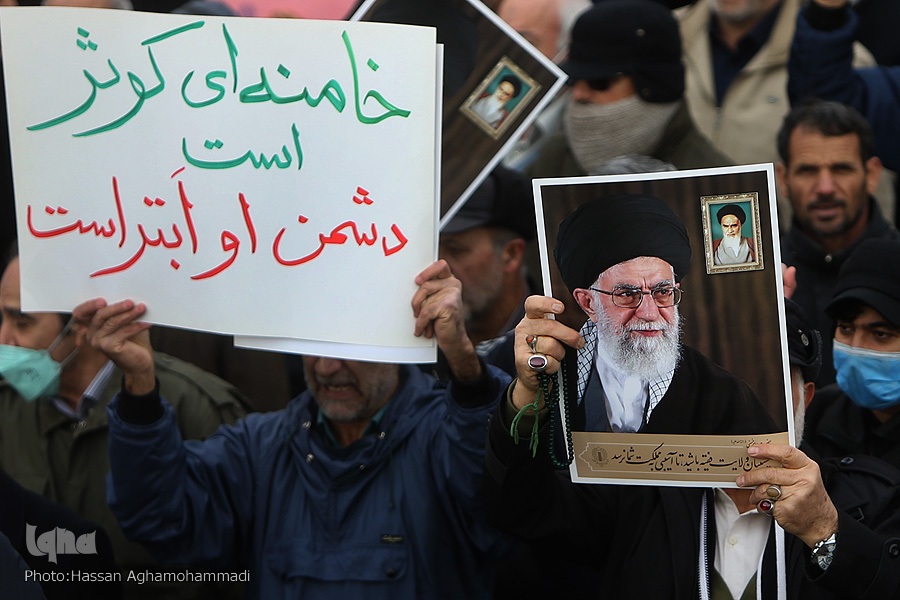 خامنه‌ای کوثر
است
دشمن او اَبتر است
پشتیبان ولایت فقیه باشید تا آسیبی به مملکت شما نرسد
iqna
Photo:Hassan Aghamohammadi